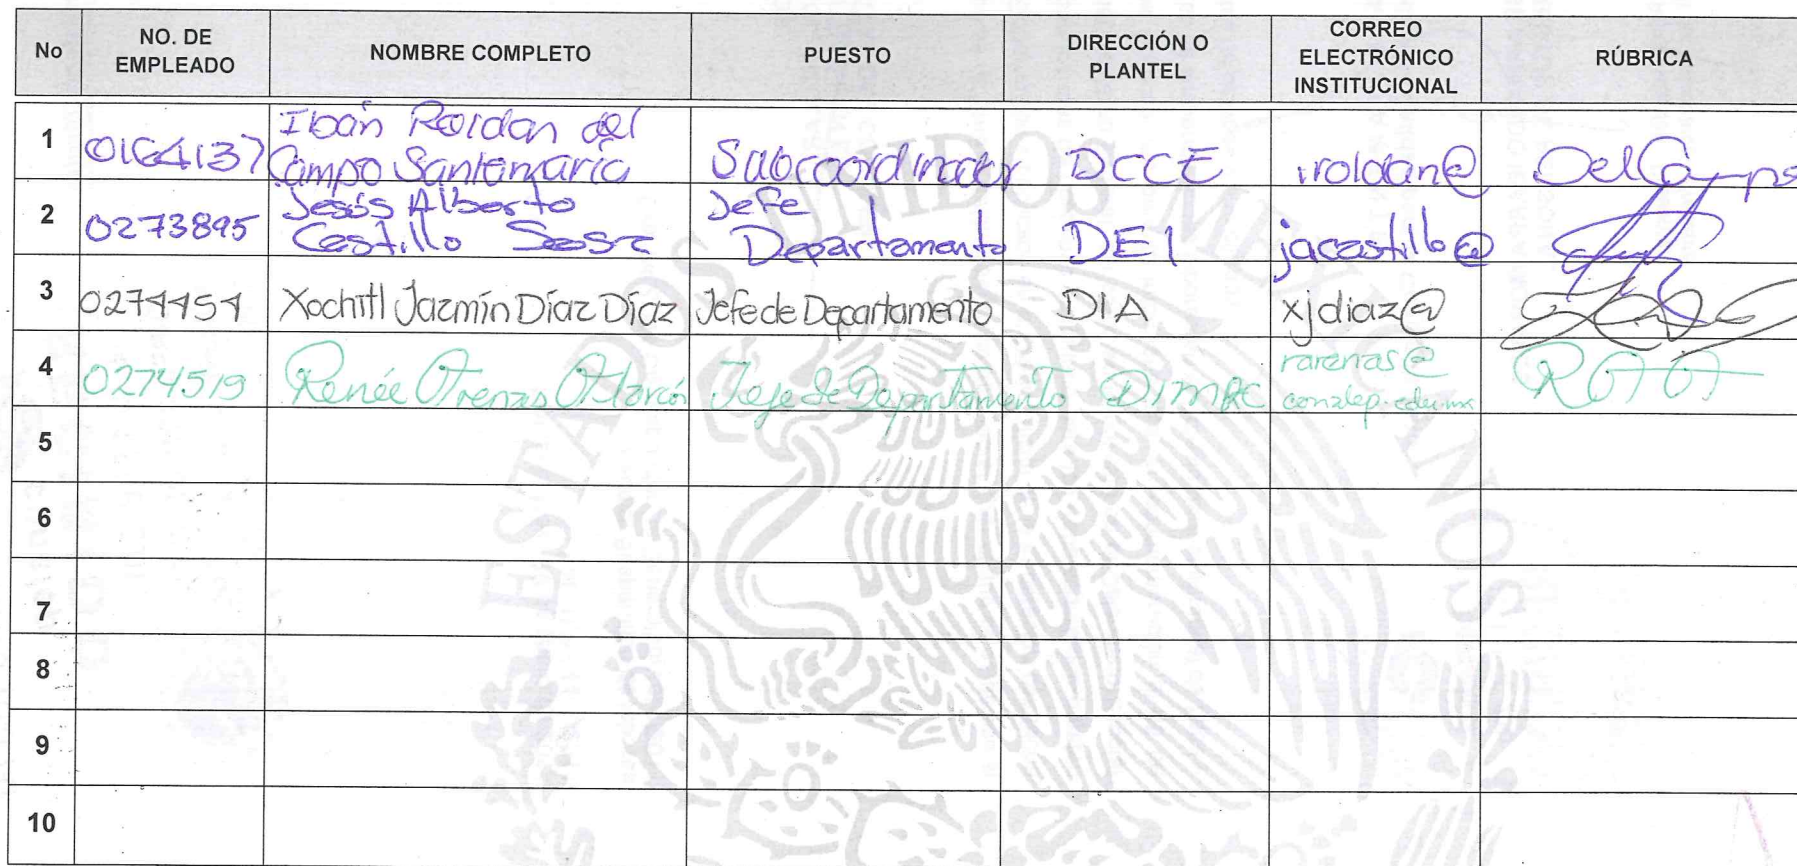 No NO. DE EMPLEADO NOMBRE COMPLETO PUESTO DIRECCIÓN O PLANTEL CORREO ELECTRÓNICO INSTITUCIONAL RÚBRICA
1 0164137 Ibán Roldan del Campo Santamaría Subcoordinador DCCE iroldan@ DelCamp
2 0273895 Jesús Alberto Castillo Sosa Jefe Departamento DEI jacastillo@
3 0274454 Xochitl Jazmín Díaz Díaz Jefe de Departamento DIA xjdiaz@
4 0274519 Renée Arenas Alarcón Jefe de Departamento rarenas@ conalep.edu.mx
5
6
7
8
9
10
ESTADOS UNIDOS MEXICANOS